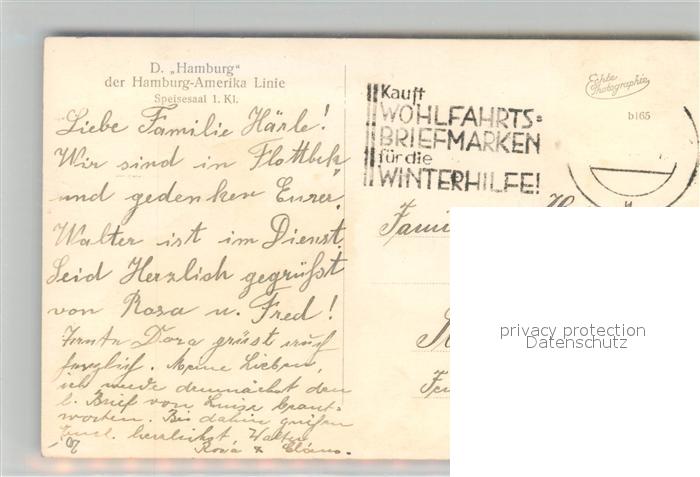 D. „Hamburg“
der Hamburg-Amerika Linie
Speisesaal 1. Kl.
Liebe Familie Härle!
Wir sind in Flottbek
und gedenken Eurer.
Walter ist im Dienst.
Seid Herzlich gegrüßt
von Rosa u. Fred!
Tante Dora grüst auch
herzlich. Meine Lieben,
ich werde demnächst den
l. Brief von Luise beant-
worten. Bis dahin grüßen
Euch herzlichst Walter
Rosa &
Kauft
WOHLFAHRTS-
BRIEFMARKEN
für die
WINTERHILFE!
Echte
Photographie
b165
Fami
privacy protection
Datenschutz